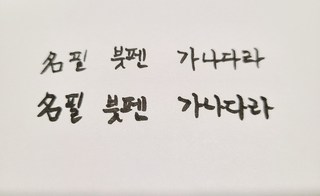 名필 붓펜 가나다라
名필 붓펜 가나다라